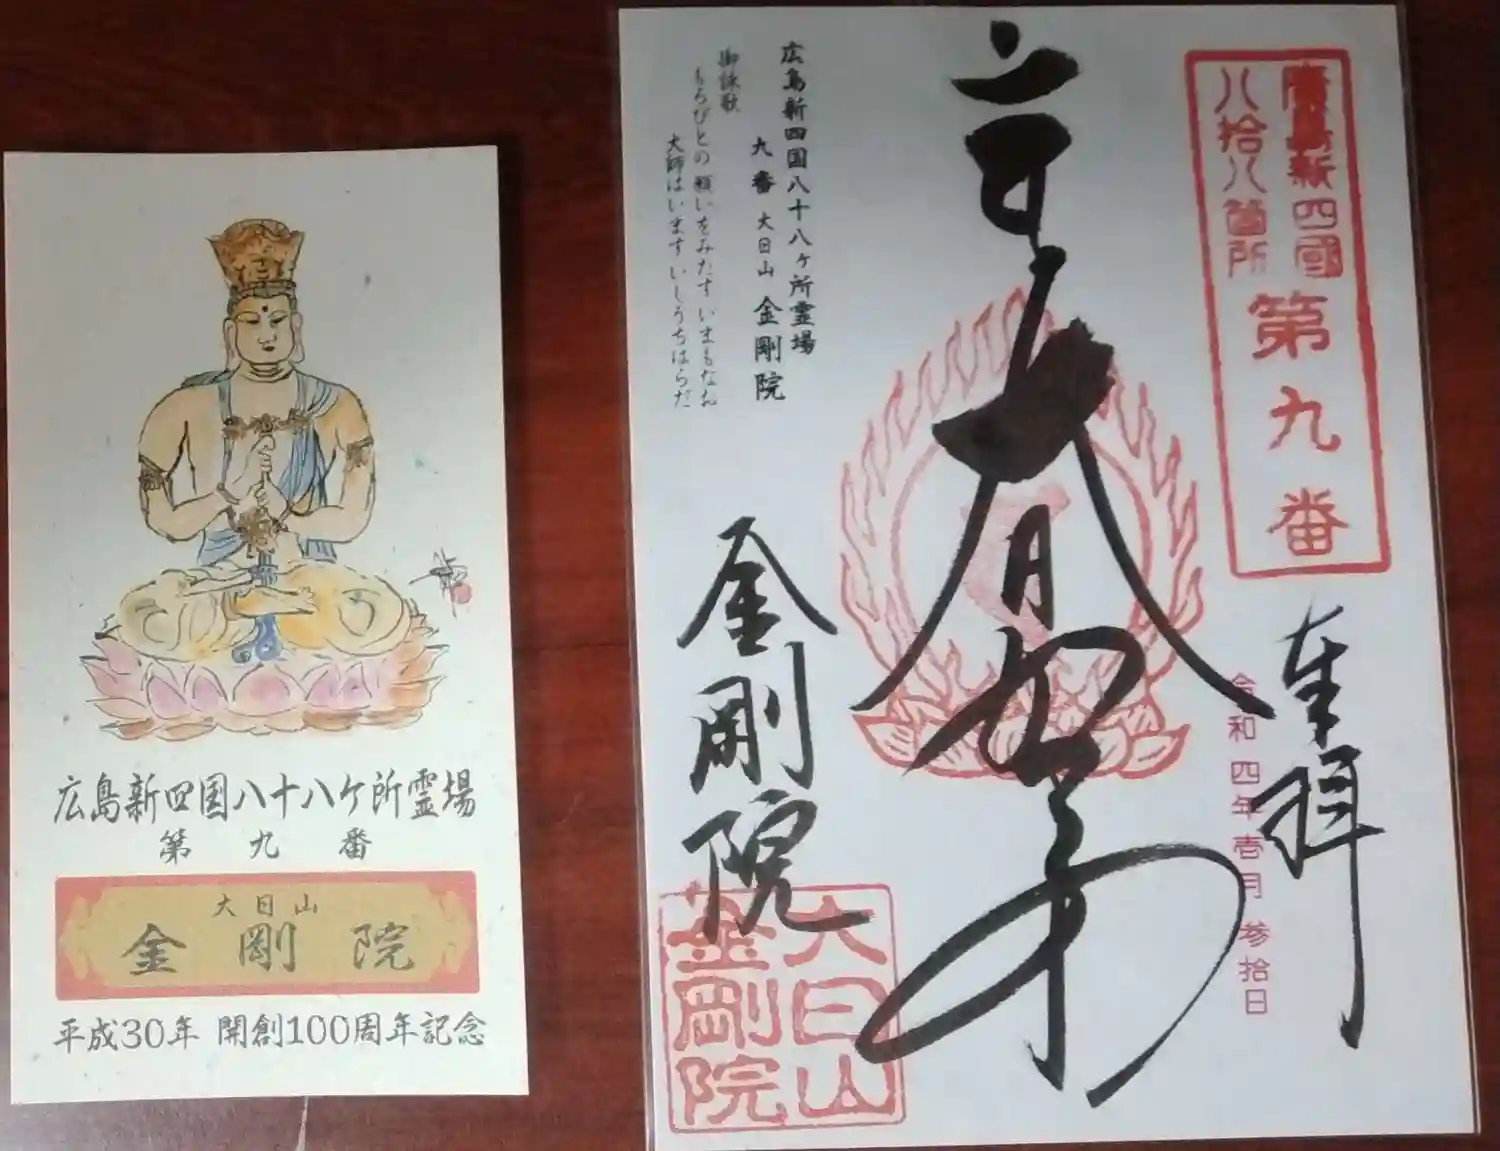 広島新四国八十八ヶ所霊場
第九番
大日山
金剛院
平成30年 開創100周年記念
廣島新四國
八拾八箇所
第九番
奉拝
令和四年壱月参拾日
大日如来
金剛院
大日山
金剛院
広島新四国八十八ヶ所霊場
九番 大日山 金剛院
御詠歌
もろびとの 願いをみたす いまもなお
大師はいます いしうちはらだ